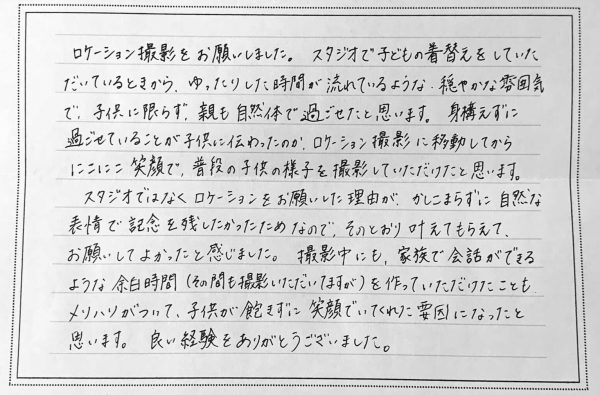 ロケーション撮影をお願いしました。 スタジオで子どもの着替えをしていた
だいているときから、ゆったりした時間が流れているような、穏やかな雰囲気
で、子供に限らず、親も自然体で過ごせたと思います。 身構えずに
過ごせていることが子供に伝わったのか、ロケーション撮影に移動してから
にこにこ笑顔で、普段の子供の様子を撮影していただけたと思います。
スタジオではなくロケーションをお願いした理由が、かしこまらずに自然な
表情で記念を残したかったためなので、そのとおり叶えてもらえて、
お願いしてよかったと感じました。 撮影中にも、家族で会話ができる
ような余白時間(その間も撮影いただいてますが)を作っていただけたことも
メリハリがついて、子供が飽きずに笑顔でいてくれた要因になったと
思います。 良い経験をありがとうございました。